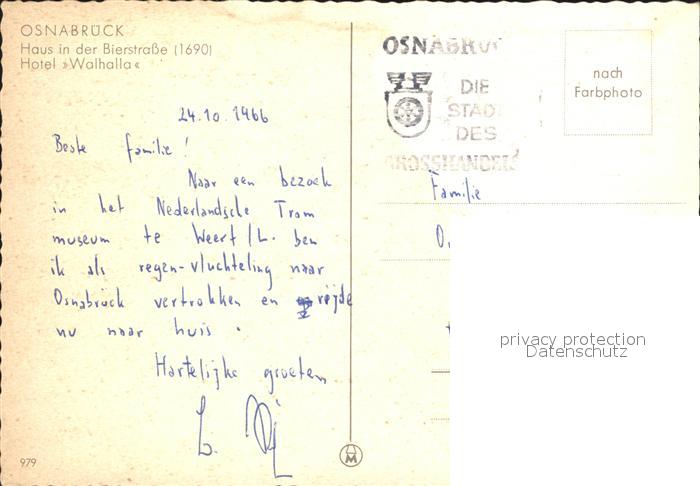 OSNABRÜCK
Haus in der Bierstraße (1690)
Hotel »Walhalla«
24.10.1966
Beste familie!
Naar een bezoek
in het Nederlandsche Tram
museum te Weert/L. ben
ik als regen-vluchteling naar
Osnabrück vertrokken en rijde
nu naar huis.
Hartelijke groeten
979
OSNABRÜ
DIE
STAD
DES
GROSSHANDELS
nach
Farbphoto
Familie
privacy protection
Datenschutz